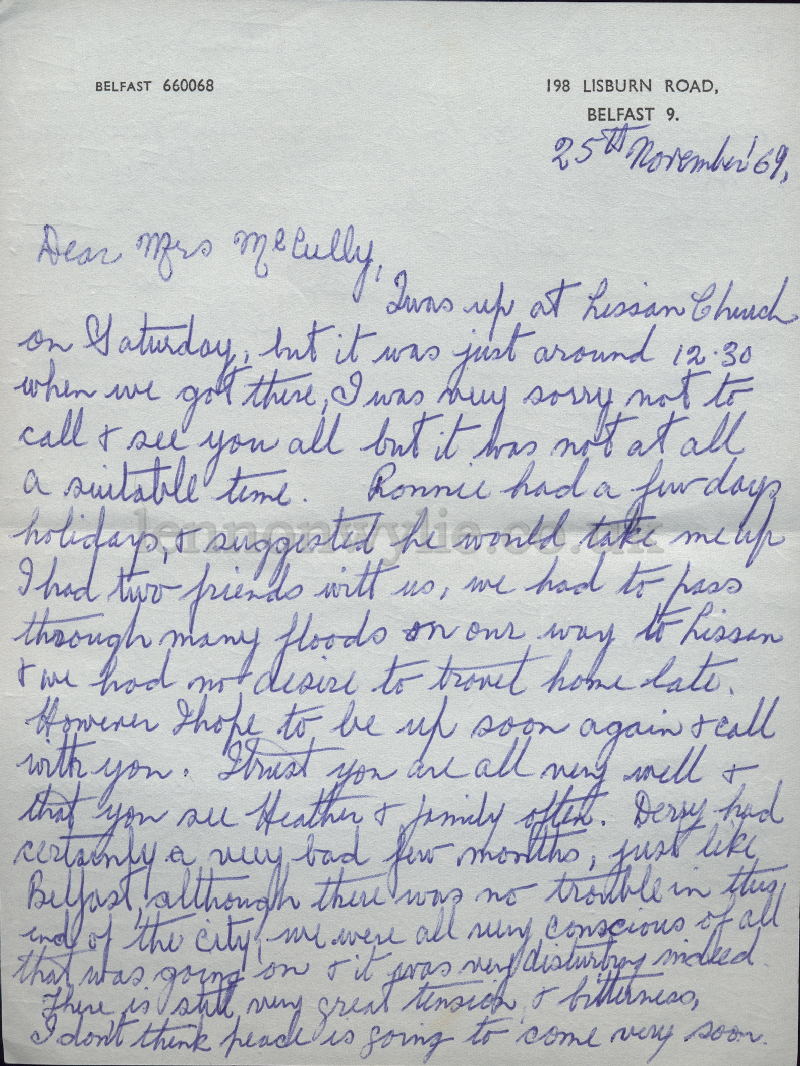 BELFAST 660068
198 LISBURN ROAD,
BELFAST 9.
25th November '69,
Dear Mrs McCully,
I was up at Lissan Church
on Saturday, but it was just around 12.30
when we got there, I was very sorry not to
call & see you all but it was not at all
a suitable time. Ronnie had a few days
holidays, & suggested he would take me up
lennonwylie.co.uk
I had two friends with us, we had to pass
through many floods on our way to Lissan
& we had no desire to travel home late.
However I hope to be up soon again & call
with you. I trust you are all very well &
that you see Heather & family often. Derry had
certainly a very bad few months, just like
Belfast, although there was no trouble in this
end of the city, we were all very conscious of all
that was going on & it was very disturbing indeed.
There is still very great tension & bitterness,
I don't think peace is going to come very soon.